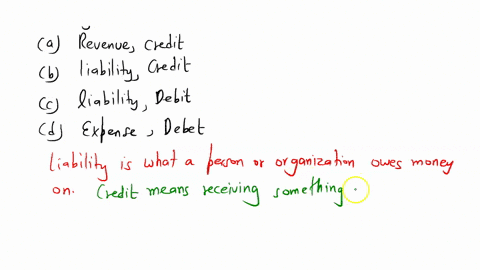 (a) Revenue, Credit
(b) liability, Credit
(c) liability, Debit
(d) Expense, Debet
liability is what a person or organization owes money
on. Credit means receiving something.